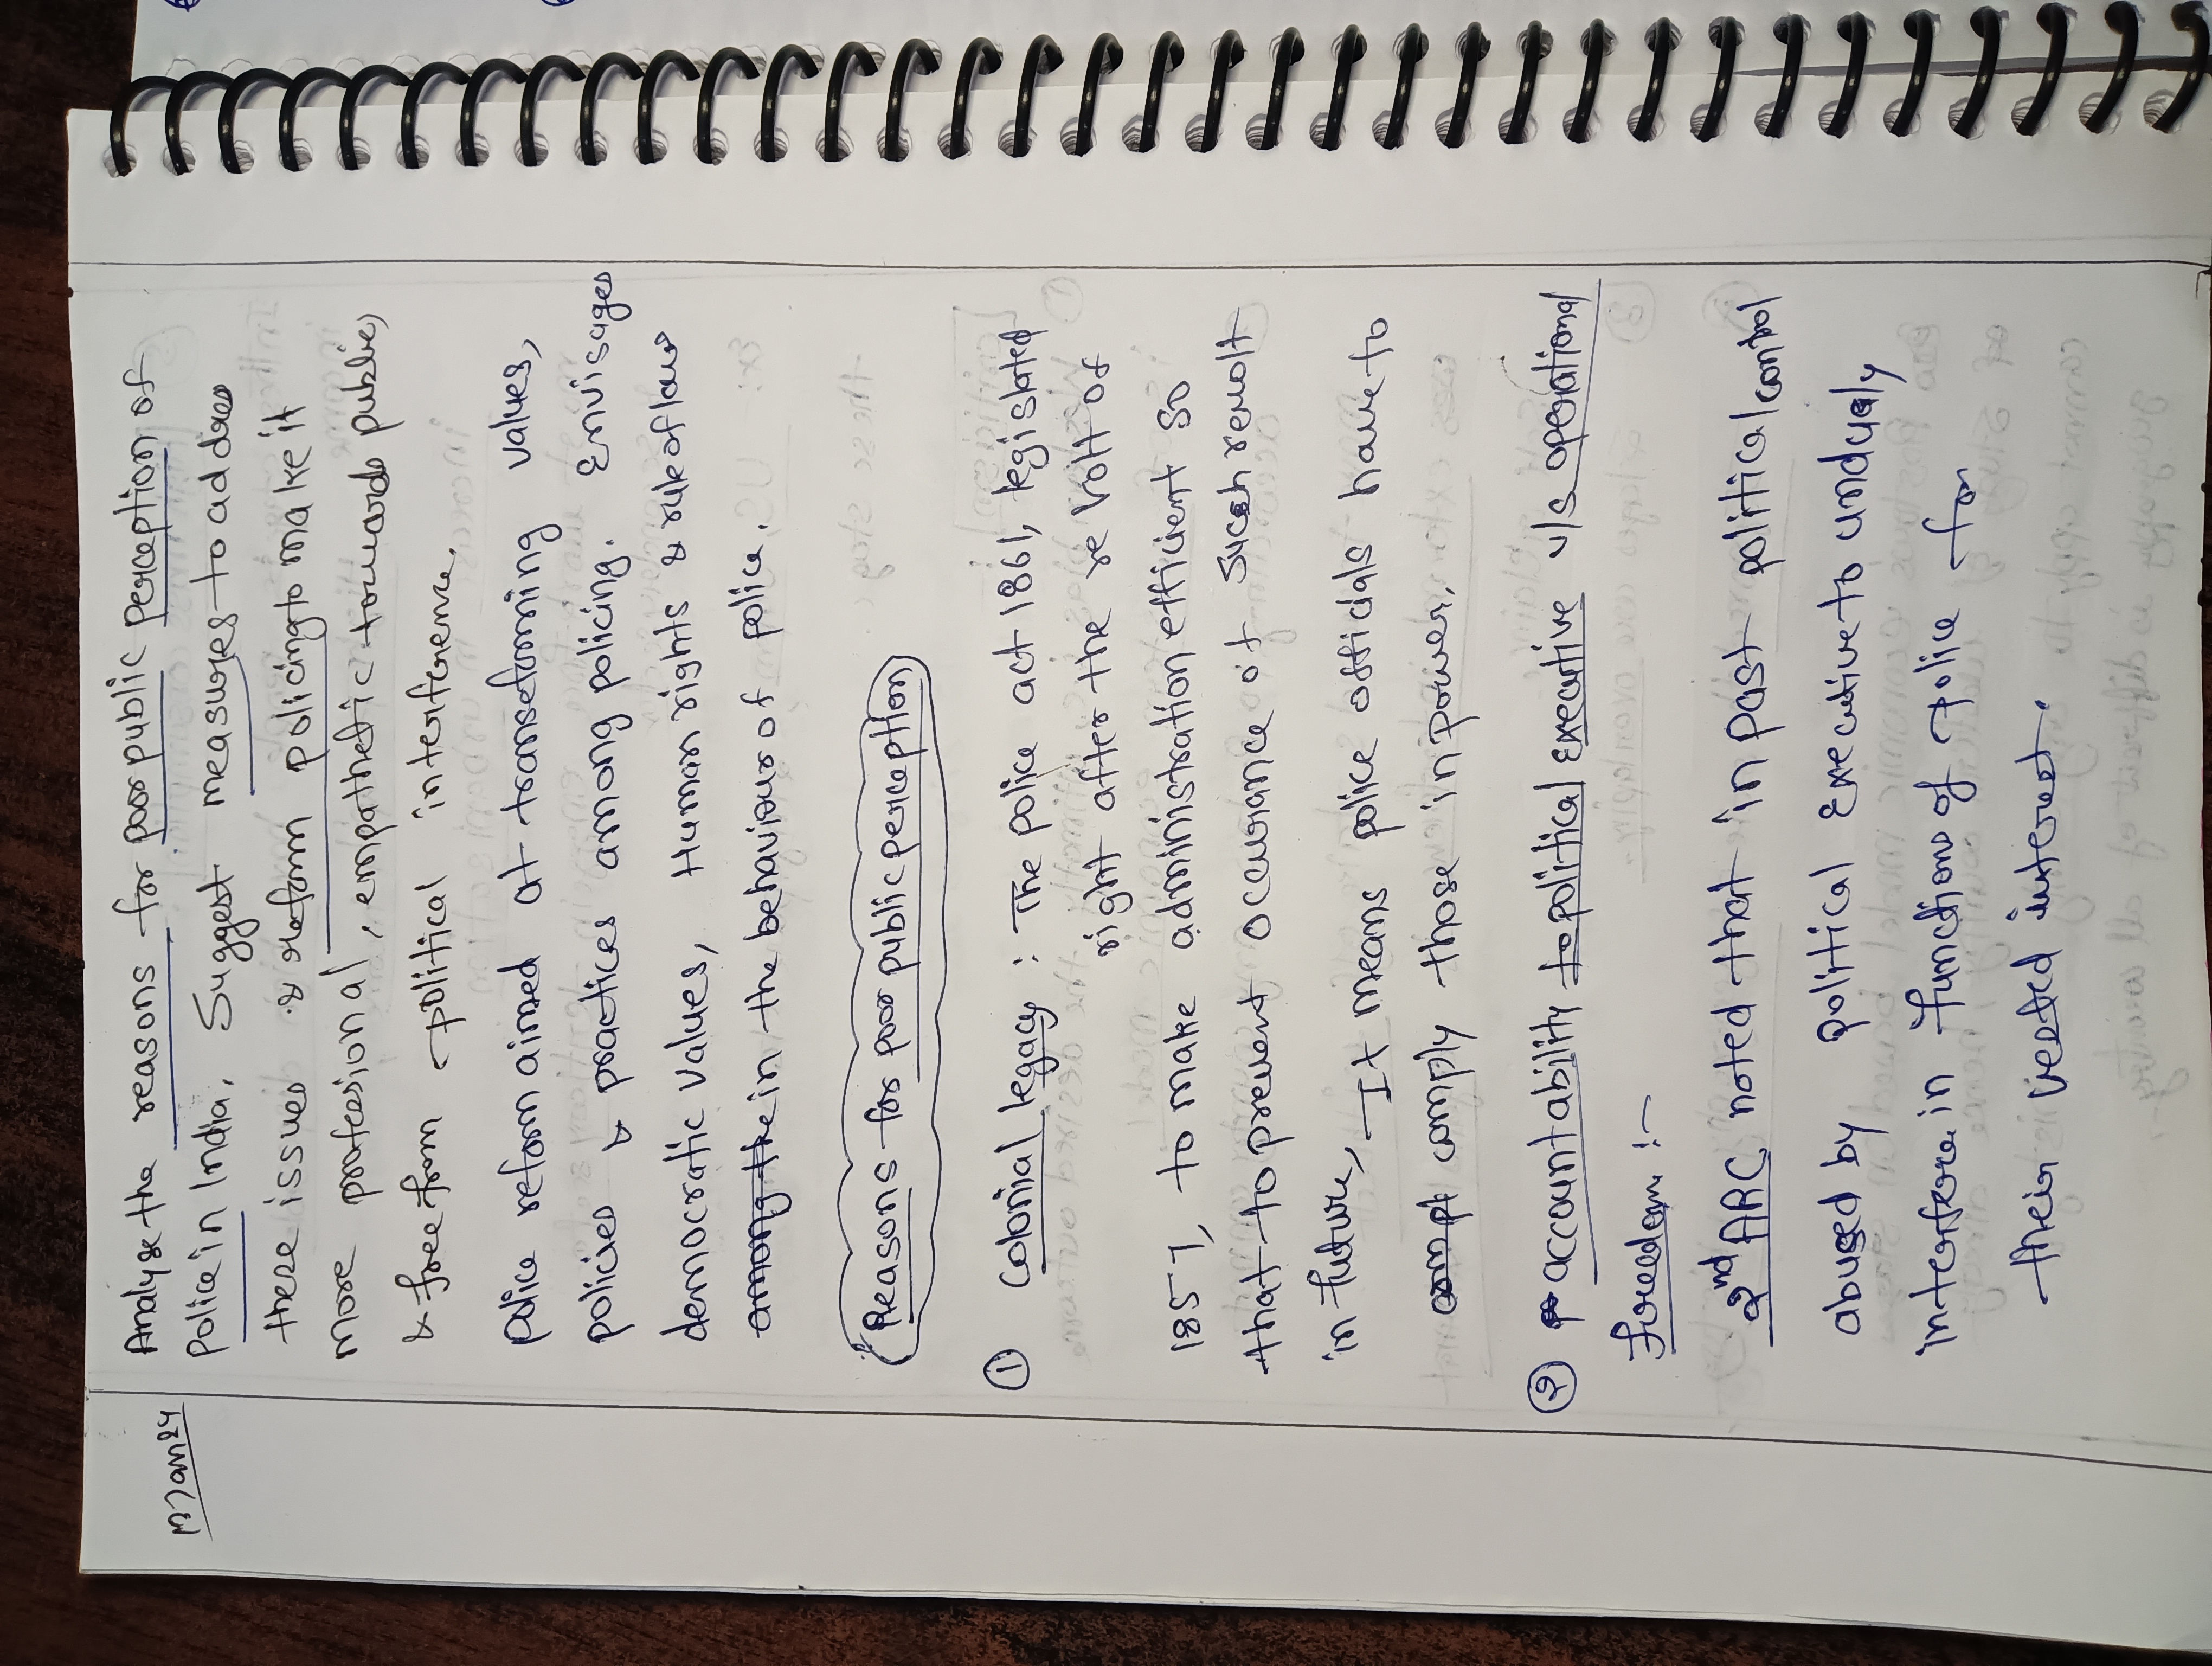 Analyse the reasons for poor public perception of
Police in India. Suggest measures to address
these issues & reform policing to make it
more professional, empathetic towards public,
& free from political interference.
police reform aimed at transforming values,
policies & practices among policing. Envisages
democratic values, Human rights & rule of law
among the in the behaviour of police.
Reasons for poor public perception
① Colonial legacy : The police act 1861, legislated
right after the revolt of
1857, to make administration efficient so
that to prevent occurance of such revolt
in future, It means police officials have to
compt comply those in power.
② accountability to political executive v/s operational
freedom :-
2nd ARC noted that in past political control
abused by political executive to unduly
interfere in functions of police for
their vested interest.